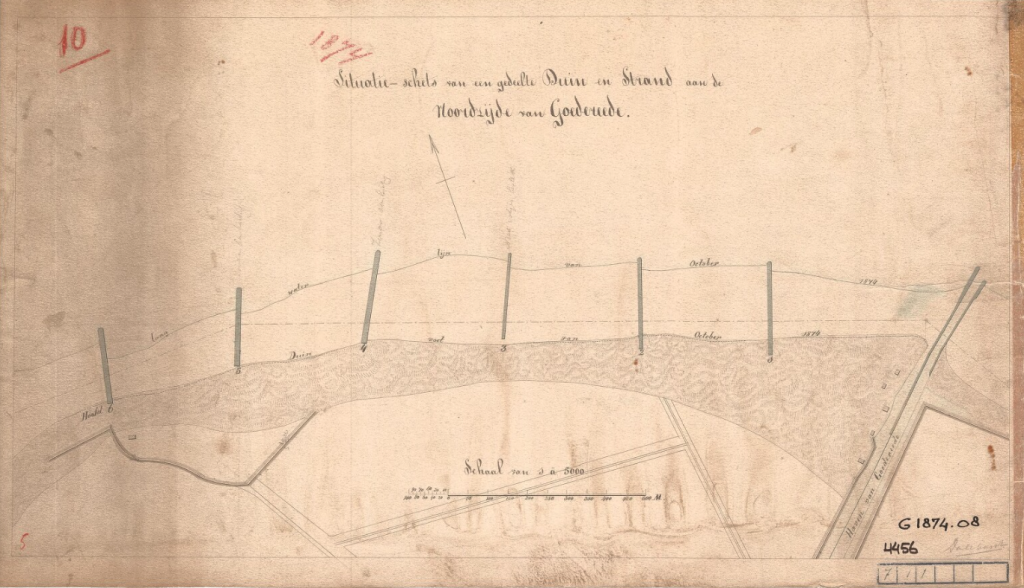 10
1874
Situatie-schets van een gedeelte Duin en Strand aan de
Noordzijde van Goederede.
Laag water lijn van October 1874
Duin voet van October 1874
Hoofd 6
5
4
3
Schaal van 1 à 5000
Haven van Goedereede
G1874.08
4456
5
7 1 1